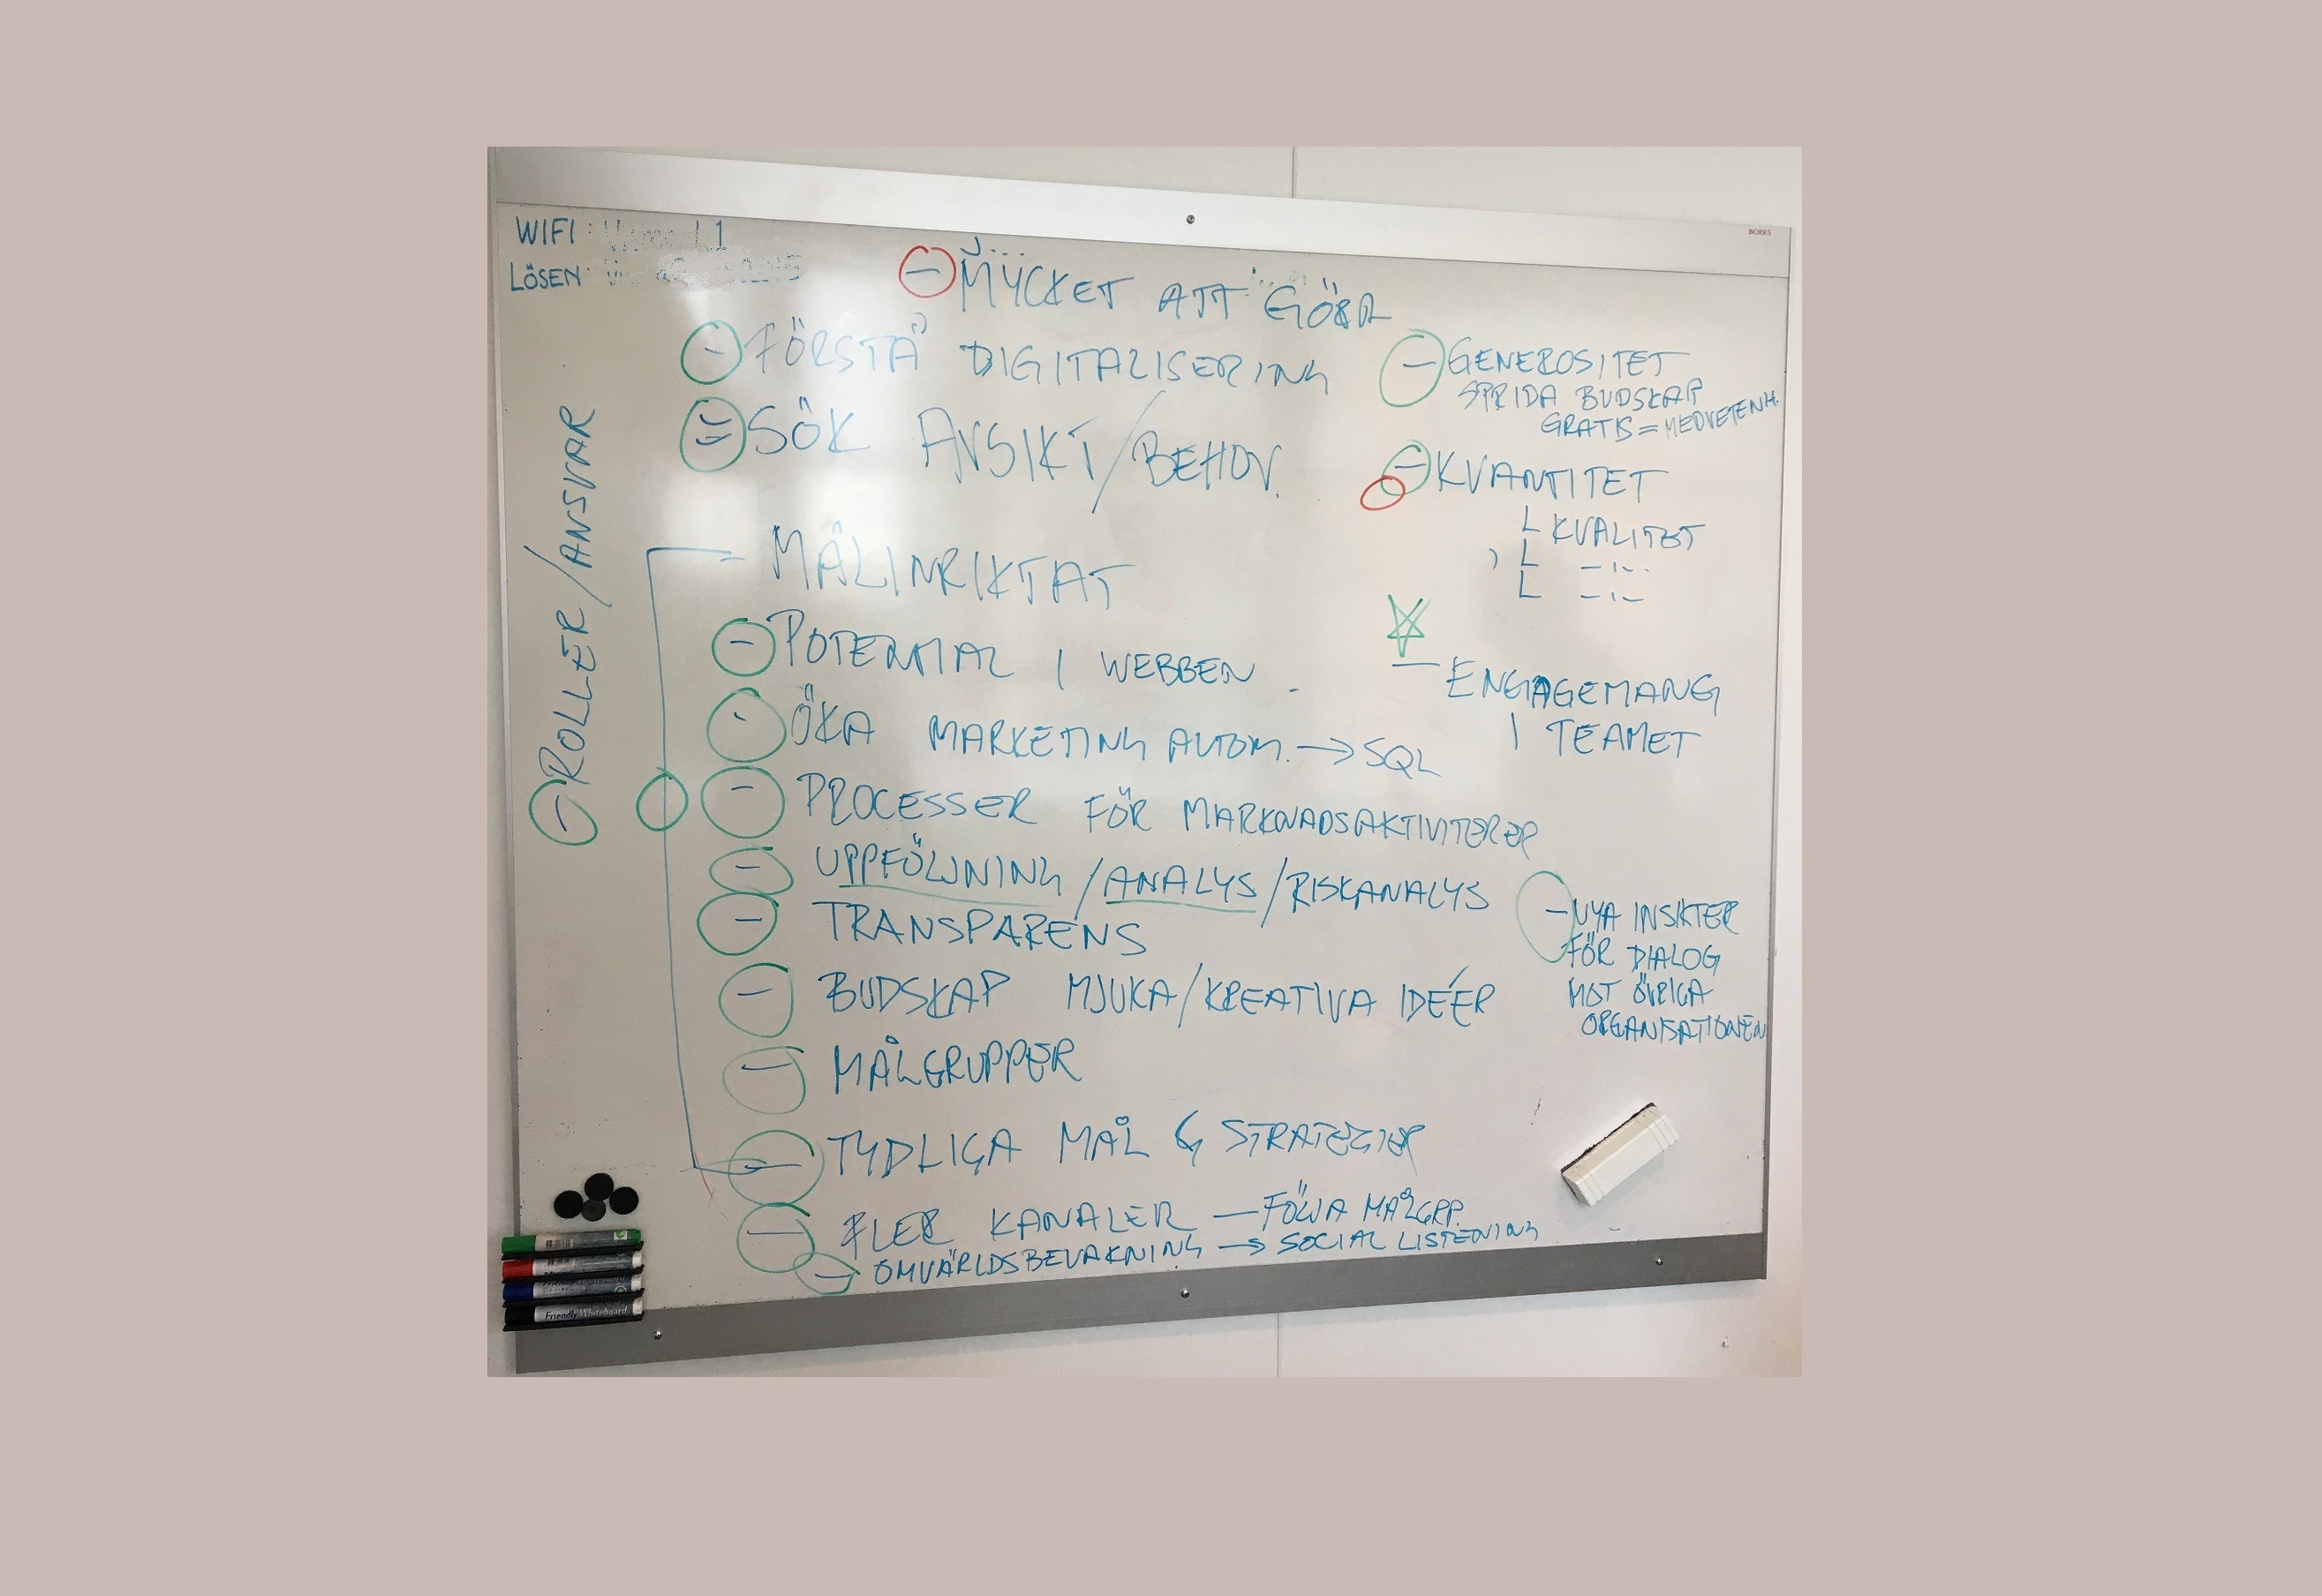 WIFI:
LÖSEN:
BORKS
- MYCKET ATT GÖRA
- FÖRSTÅ DIGITALISERING
= SÖK AVSIKT/BEHOV.
- MÅLINRIKTAT
- POTENTIAL I WEBBEN
- ÖKA MARKETING AUTOM. → SQL
- PROCESSER FÖR MARKNADSAKTIVITETER
- UPPFÖLJNING/ANALYS/RISKANALYS
- TRANSPARENS
- BUDSKAP MJUKA/KREATIVA IDÉER
- MÅLGRUPPER
- TYDLIGA MÅL & STRATEGIER
- FLER KANALER - FÖLJA MÅLGRP.
- OMVÄRLDSBEVAKNING → SOCIAL LISTENING
- ROLLER/ANSVAR
- GENEROSITET
SPRIDA BUDSKAP
GRATIS = MEDVETENH.
- KVANTITET
KVALITET
-"-
-"-
- ENGAGEMANG
I TEAMET
- NYA INSIKTER
FÖR DIALOG
MOT ÖVRIGA
ORGANISATIONEN
Friendly Whiteboard